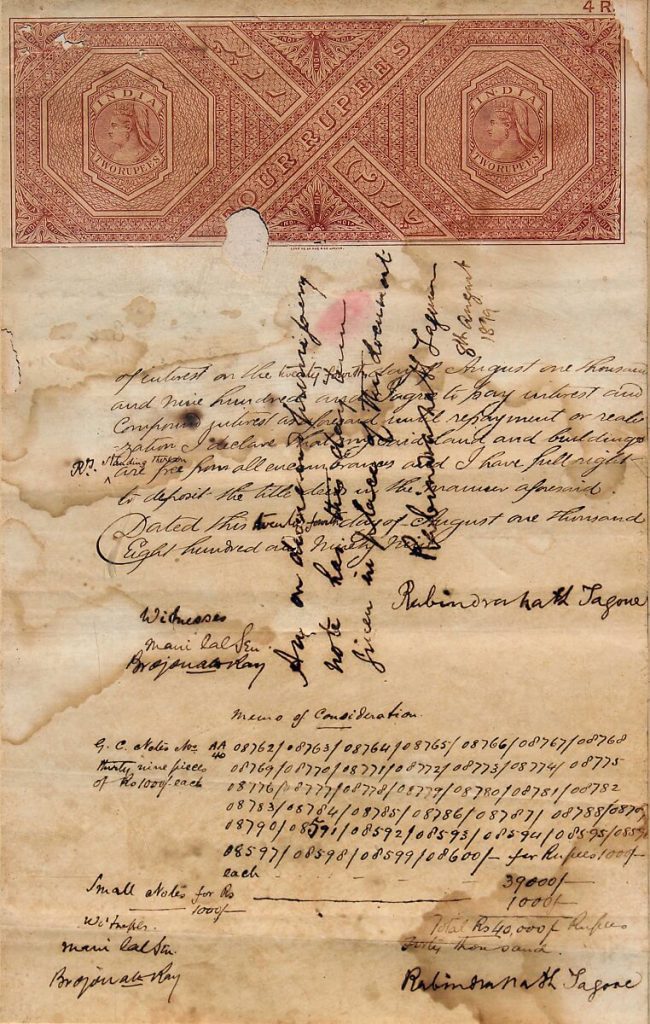 4 R.
INDIA
TWO RUPEES
FOUR RUPEES
INDIA
TWO RUPEES
of interest on the twenty fourth day of August one thousand
and nine hundred and I agree to pay interest and
Compound interest as aforesaid until repayment or reali
-zation I declare that my said land and buildings
R.T. standing thereon
are free from all encumbrances and I have full right
to deposit the title deeds in the manner aforesaid.
Dated this twenty fourth day of August one thousand
Eight hundred and Ninety Nine
An on demand promissory
note has this day been
given in place of this document
Rabindranath Tagore
8th August
1899
Rabindranath Tagore
Witnesses
Mani lal Sen
Brojonath Ray
Memo of Consideration.
G. C. Notes Nos AA/40 08762/08763/08764/08765/08766/08767/08768
thirty nine pieces 08769/08770/08771/08772/08773/08774/08775
of Rs 1000/- each 08776/08777/08778/08779/08780/08781/08782
08783/08784/08785/08786/08787/08788/
08790/08591/08592/08593/08594/08595/
08597/08598/08599/08600/- for Rupees 1000/-
each - - - - 39000/-
Small Notes for Rs 1000/- 1000/-
Total Rs 40,000/- Rupees
forty thousand.
Witnesses.
Mani lal Sen.
Brojonath Ray
Rabindranath Tagore